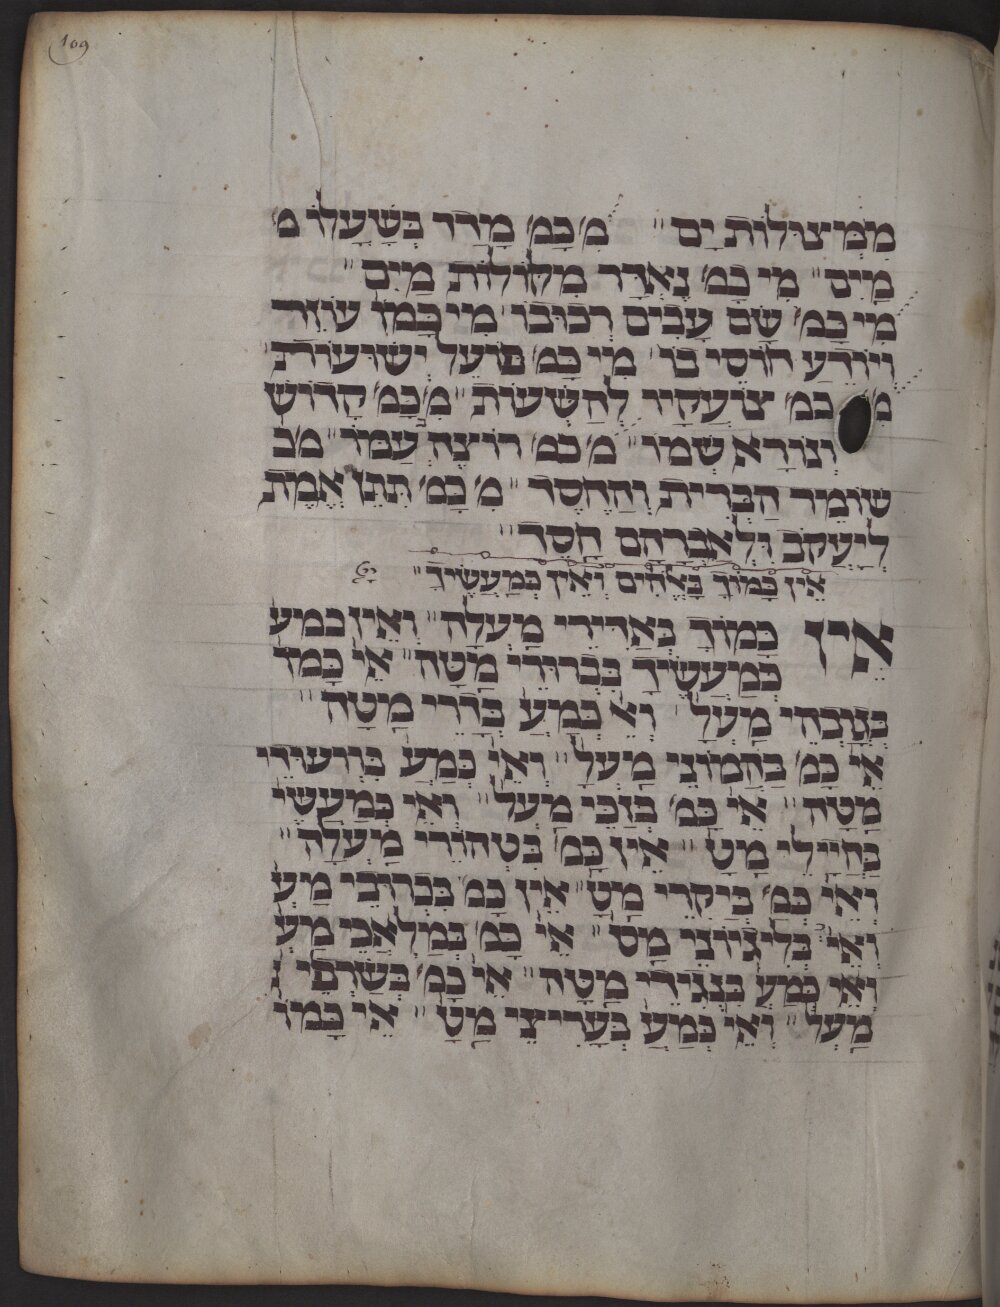 109
מִמְצוּלוֹת יָם״ מִ׳ כָמ׳ מָדַד בְּשָׁעֳלוֹ מ׳
מַיִם״ מִי כָמ׳ נֶאְדָר מִקּוֹלוֹת מַיִם״
מִי כָמ׳ שָׂם עָבִים רְכוּבוֹ׳ מִי כָּמוֹ עוֹזֵר
וְיוֹדֵעַ חוֹסֵי בוֹ׳ מִי כָמ׳ פּוֹעֵל יְשׁוּעוֹת
מ׳ כמ׳ צוֹעֲקָיו לְחַשְׁעוֹת״ מ׳ כָמ׳ קָדוֹשׁ
וְנוֹרָא שְׁמוֹ״ מ׳ כמ׳ רוֹצֶה עַמּוֹ״ מ׳ כ
שׁוֹמֵר הַבְּרִית וְהַחֶסֶד״ מִ׳ כָמ׳ תִּתֵּן אֱמֶת
לְיַעֲקֹב וּלְאַבְרָהָם חֶסֶד״
אֵין כָּמוֹךָ בָּאֱלֹהִים וְאֵין כְּמַעֲשֶׂיךָ״
אֵין כָּמוֹךָ בְּאַדִּירֵי מַעְלָה״ וְאֵין כמע
כְּמַעֲשֶׂיךָ בִּבְרוּרֵי מַטָּה״ אֵי כָּמוֹ
בִּגְדוּדֵי מַעְלָ׳ וְאֵ׳ כְּמַעֲ בְּדָרֵי מַטָּה״
אֵ׳ כָמ׳ בַּהֲמוֹנֵי מַעְלָ״ וְאֵי׳ כְּמַעֲ
מַטָּה״ אֵי׳ כָּמ׳ בְּזַכֵּי מַעְל״ וְאֵי׳ כְּמַעֲשֶׂי
בְּחַיָּלֵי מַטָּ״ אֵין כָּמ׳ בִּטְהוֹרֵי מַעְלָה״
וְאֵי׳ כְּמ׳ בִּיקְרֵי מַטָּ״ אֵין כָּמ׳ בִּכְרוּבֵי מַעְ
וְאֵי׳ בְּלִיגְיוֹנֵי מַט״ אֵי׳ כָּמ׳ בְּמַלְאֲכֵי מַעְ
וְאֵי׳ כְּמַעֲ בִּנְגִידֵי מַטָּה״ אֵי׳ כָמ׳ בִּשְׂרָפֵי
מַעְל״ וְאֵי׳ כְּמַעֲ בְּעָרִיצֵי מַטָּ״ אֵי׳ כָּמוֹ